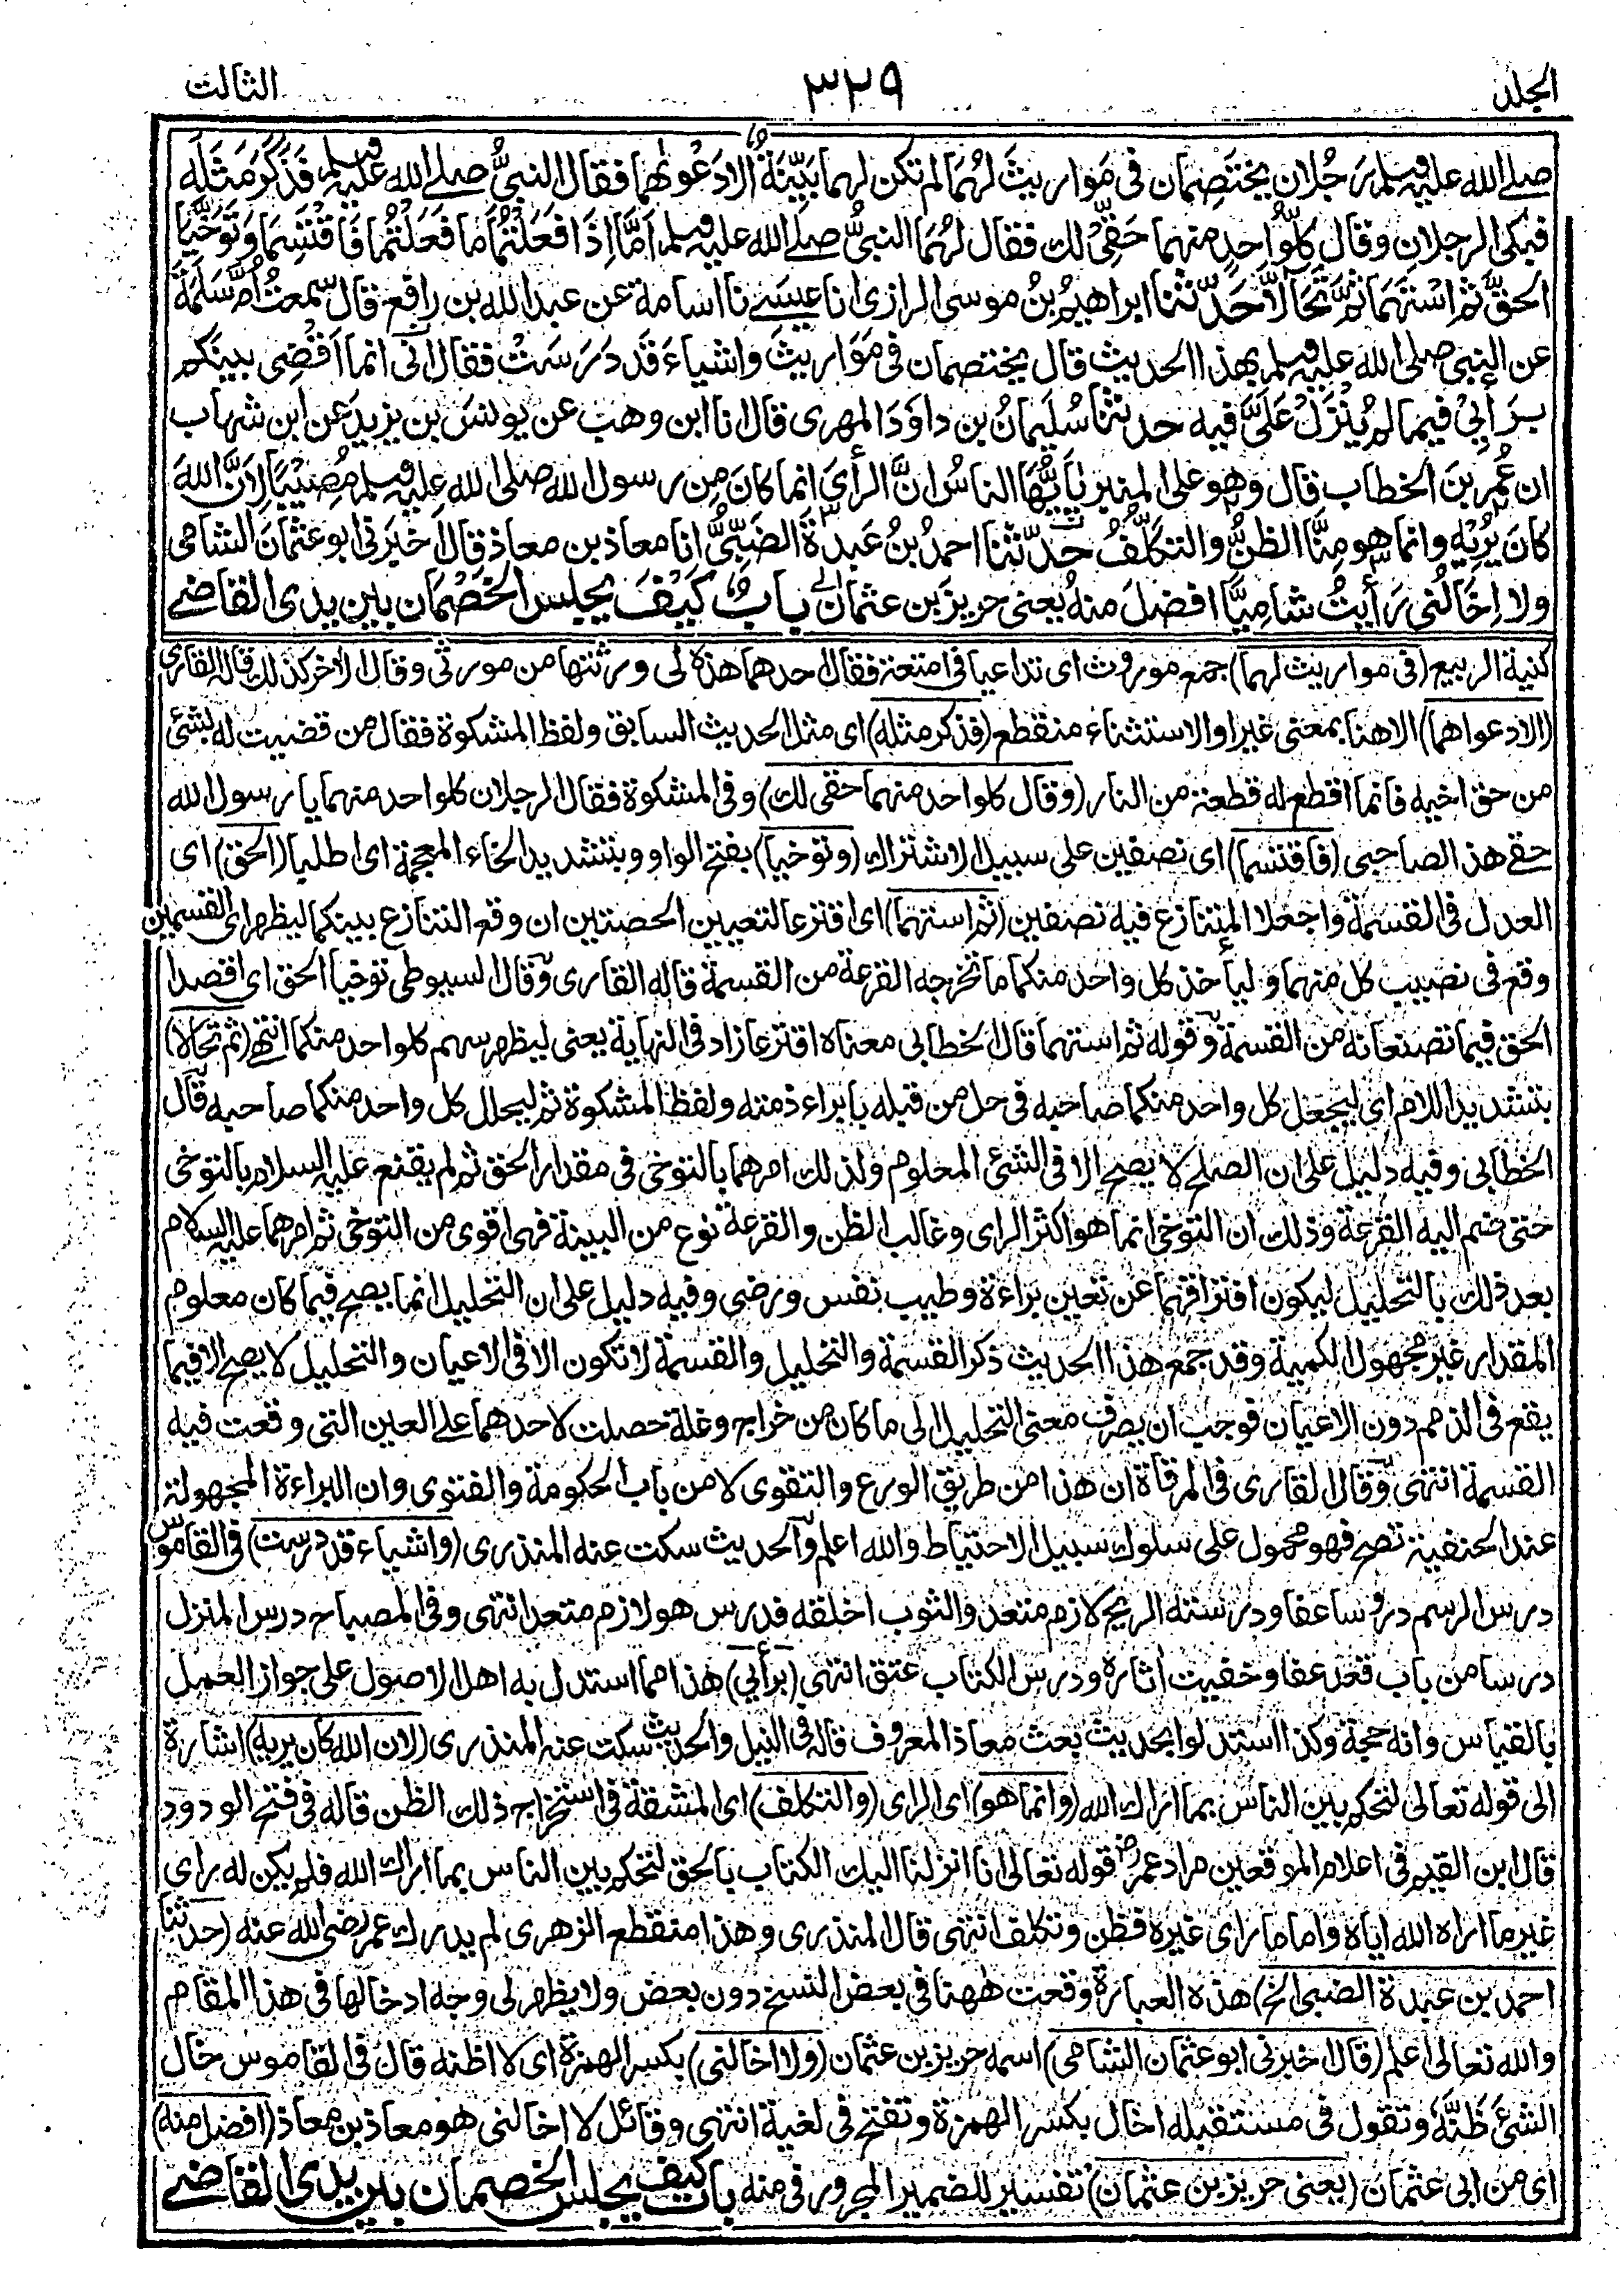 الجلد ٣٢٩ الثالث
صلے الله عليه وسلم رَجُلان يختَصِمان فى مَواريثَ لهُمَا لم تكن لهما بَيّنَةٌ الا دَعْوٰهما فقال النبىُّ صلے الله عليه وسلم فَذَكَرَ مَثَلَه
فبكى الرجلانِ وقال كلُّ واحدٍ منهما حَقِّىْ لك فقال لهُمَا النبىُّ صلے الله عليه وسلم اَمَّا اِذَا فعَلْتُمَا ما فَعَلْتُما فَاقْتَسِمَا وَتَوَخَّيَا
الحَقَّ ثم اسْتَهِمَا ثُمَّ تَحَالَّا حَدّثنا ابراهيمُ بنُ موسى الرازى انا عيسے نا اسامة عن عبد الله بن رافع قال سمعتُ اُمَّ سَلَمَةَ
عن النبى صلى الله عليه وسلم بهذا الحديث قال يختصمان فى مَوَاريثَ واشياءَ قد دَرَسَتْ فقال انى انما اَقْضِى بينكم
بِرَأيِىْ فيما لم يُنْزَلْ عَلَىَّ فيه حدثنا سُلَيمانُ بن داوَدَ المهرى قال انا ابن وهب عن يونس بن يزيدَ عن ابن شهاب
ان عُمر بنَ الخطاب قال وهو على المنبر يٰاَيُّهَا الناسُ انَّ الرأىَ انما كانَ مِن رسول الله صلى الله عليه وسلم مُصِيْبًا لِاَنَّ اللهَ
كانَ يُرِيْهِ وانما هو مِنَّا الظنُّ والتكلّفُ حدّثنا احمدُ بنُ عَبدةَ الضَبِّىُّ انا معاذ بن معاذ قال اَخبَرنى ابو عثمانَ الشامى
ولا اِخَالُنى رَأيتُ شامِيًّا افضلَ منهُ يعنى حريزَ بن عثمان باب كَيْفَ يجلس الخَصْمانِ بين يدى القاضے
كنية الربيع (فى مواريث لهما) جمع موروث اى تداعيا فى امتعة فقال احدهما هذه لى ورثتها من مورثى وقال الاخر كذلك قاله القارى
(الا دعواهما) الا هنا بمعنى غير او الاستثناء منقطع (فذكر مثله) اى مثل الحديث السابق ولفظ المشكوة فقال من قضيت له بشئ
من حق اخيه فانما اقطع له قطعة من النار (وقال كل واحد منهما حقى لك) وفى المشكوة فقال الرجلان كل واحد منهما يا رسول الله
حقے هذا لصاحبى (فاقتسما) اى نصفين على سبيل الاشتراك (وتوخيا) بفتح الواو وبتشديد الخاء المعجمة اى اطلبا (الحق) اى
العدل فى القسمة واجعلا المتنازع فيه نصفين (ثم استهما) اى اقترعا لتعيين الحصتين ان وقع التنازع بينكما ليظهر اى القسمين
وقع فى نصيب كل منهما وليأخذ كل واحد منكما ما تخرجه القرعة من القسمة قاله القارى وقال السيوطى توخيا الحق اى اقصدا
الحق فيما تصنعانه من القسمة وقوله ثم استهما قال الخطابى معناه اقترعا زاد فى النهاية يعنى ليظهر سهم كل واحد منكما انتهے (ثم تحالا)
بتشديد اللام اى ليجعل كل واحد منكما صاحبه فى حل من قبله بابراء ذمته ولفظ المشكوة ثم ليحلل كل واحد منكما صاحبه قال
الخطابى وفيه دليل على ان الصلح لا يصح الا فى الشئ المعلوم ولذلك امرهما بالتوخى فى مقدار الحق ثم لم يقنع عليه السلام بالتوخى
حتى ضم اليه القرعة وذلك ان التوخى انما هو اكثر الراى وغالب الظن والقرعة نوع من البينة فهى اقوى من التوخى ثم امرهما عليه السلام
بعد ذلك بالتحليل ليكون افتراقهما عن تعين براءة وطيب نفس ورضى وفيه دليل على ان التحليل انما يصح فيما كان معلوم
المقدار غير مجهول الكمية وقد جمع هذا الحديث ذكر القسمة والتحليل والقسمة لا تكون الا فى الاعيان والتحليل لا يصح الا فيما
يقع فى الذمم دون الاعيان فوجب ان يصرف معنى التحليل الى ما كان من خراج وغلة حصلت لاحدهما على العين التى وقعت فيه
القسمة انتهى وقال القارى فى المرقاة ان هذا من طريق الورع والتقوى لا من باب الحكومة والفتوى وان البراءة المجهولة
عند الحنفية تصح فهو محمول على سلوك سبيل الاحتياط والله اعلم والحديث سكت عنه المنذرى (واشياء قد درست) فى القاموس
درس الرسم دروسا عفا ودرسته الريح لازم متعد والثوب اخلقه فدرس هو لازم متعد انتهى وفى المصباح درس المنزل
درسا من باب قعد عفا وخفيت اثاره ودرس الكتاب عتق انتهى (برأيي) هذا مما استدل به اهل الاصول على جواز العمل
بالقياس وانه حجة وكذا استدلوا بحديث بعث معاذ المعروف قاله فى النيل والحديث سكت عنه المنذرى (لان الله كان يريه) اشارة
الى قوله تعالى لتحكم بين الناس بما اراك الله (وانما هو) اى الراى (والتكلف) اى المشقة فى استخراج ذلك الظن قاله فى فتح الودود
قال ابن القيم فى اعلام الموقعين مراد عمرؓ قوله تعالى انا انزلنا اليك الكتاب بالحق لتحكم بين الناس بما اراك الله فلم يكن له راى
غير ما اراه الله اياه واما ما راى غيره فظن وتكلف انتهى قال المنذرى وهذا منقطع الزهرى لم يدرك عمر رضى الله عنه (حدثنا
احمد بن عبدة الضبى الخ) هذه العبارة وقعت ههنا فى بعض النسخ دون بعض ولا يظهر لى وجه ادخالها فى هذا المقام
والله تعالى اعلم (قال اخبرنى ابو عثمان الشامى) اسمه حريز بن عثمان (ولا اخالنى) بكسر الهمزة اى لا اظنه قال فى القاموس خال
الشئ ظَنَّهُ وتقول فى مستقبله اخال بكسر الهمزة وتفتح فى لغية انتهى وقائل لا اخالنى هو معاذ بن معاذ (افضل منه)
اى من ابى عثمان (يعنى حريز بن عثمان) تفسير للضمير المجرور فى منه باب كيف يجلس الخصمان بين يدى القاضے